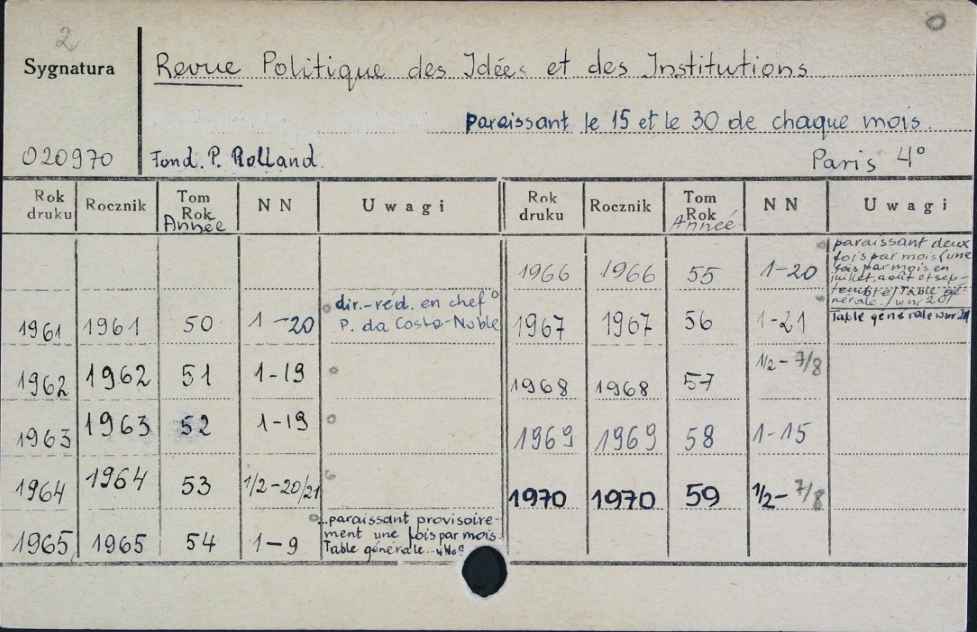 2
Sygnatura
Revue Politique des Idées et des Institutions
paraissant le 15 et le 30 de chaque mois.
020970
Fond. P. Rolland.
Paris 4°
Rok druku Rocznik Tom Rok Année NN Uwagi Rok druku Rocznik Tom Rok Année NN Uwagi
1966 1966 55 1-20 paraissant deux
fois par mois (une
fois par mois en
juillet, août et sep-
tembre) Table gé-
nérale w nr 20
1961 1961 50 1-20 dir.-réd. en chef
P. da Costa-Noble
1967 1967 56 1-21 Table générale w nr 21
1962 1962 51 1-19
1968 1968 57 1/2-7/8
1963 1963 52 1-19
1969 1969 58 1-15
1964 1964 53 1/2-20/21
1970 1970 59 1/2-7/8
1965 1965 54 1-9 paraissant provisoire-
ment une fois par mois.
Table générale